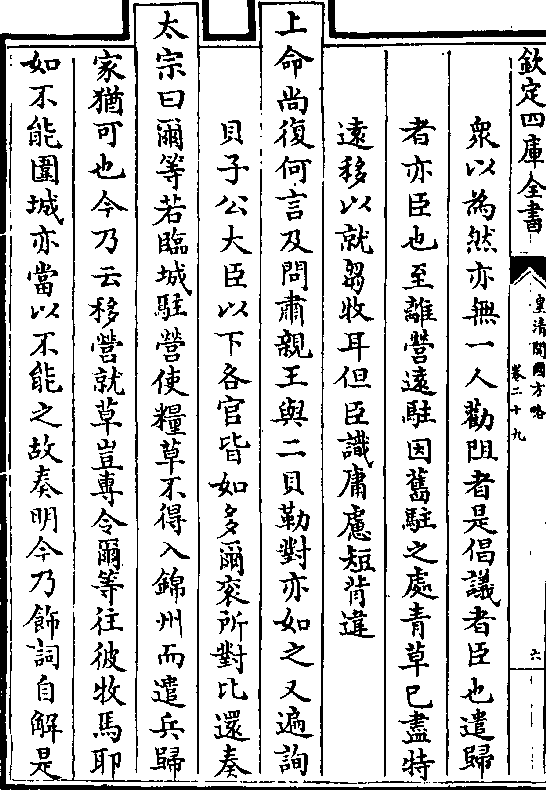 欽定四庫全書
皇清開國方略
卷二十九
六
衆以為然亦無一人勸阻者是倡議者臣也遣歸
者亦臣也至離營遠駐因舊駐之處青草已盡特
遠移以就芻牧耳但臣識庸慮短背違
上命尚復何言及問肅親王與二貝勒對亦如之又遍詢
貝子公大臣以下各官皆如多爾袞所對比還奏
太宗曰爾等若臨城駐營使糧草不得入錦州而遣兵歸
家猶可也今乃云移營就草豈專令爾等往彼牧馬耶
如不能圍城亦當以不能之故奏明今乃飾詞自解是